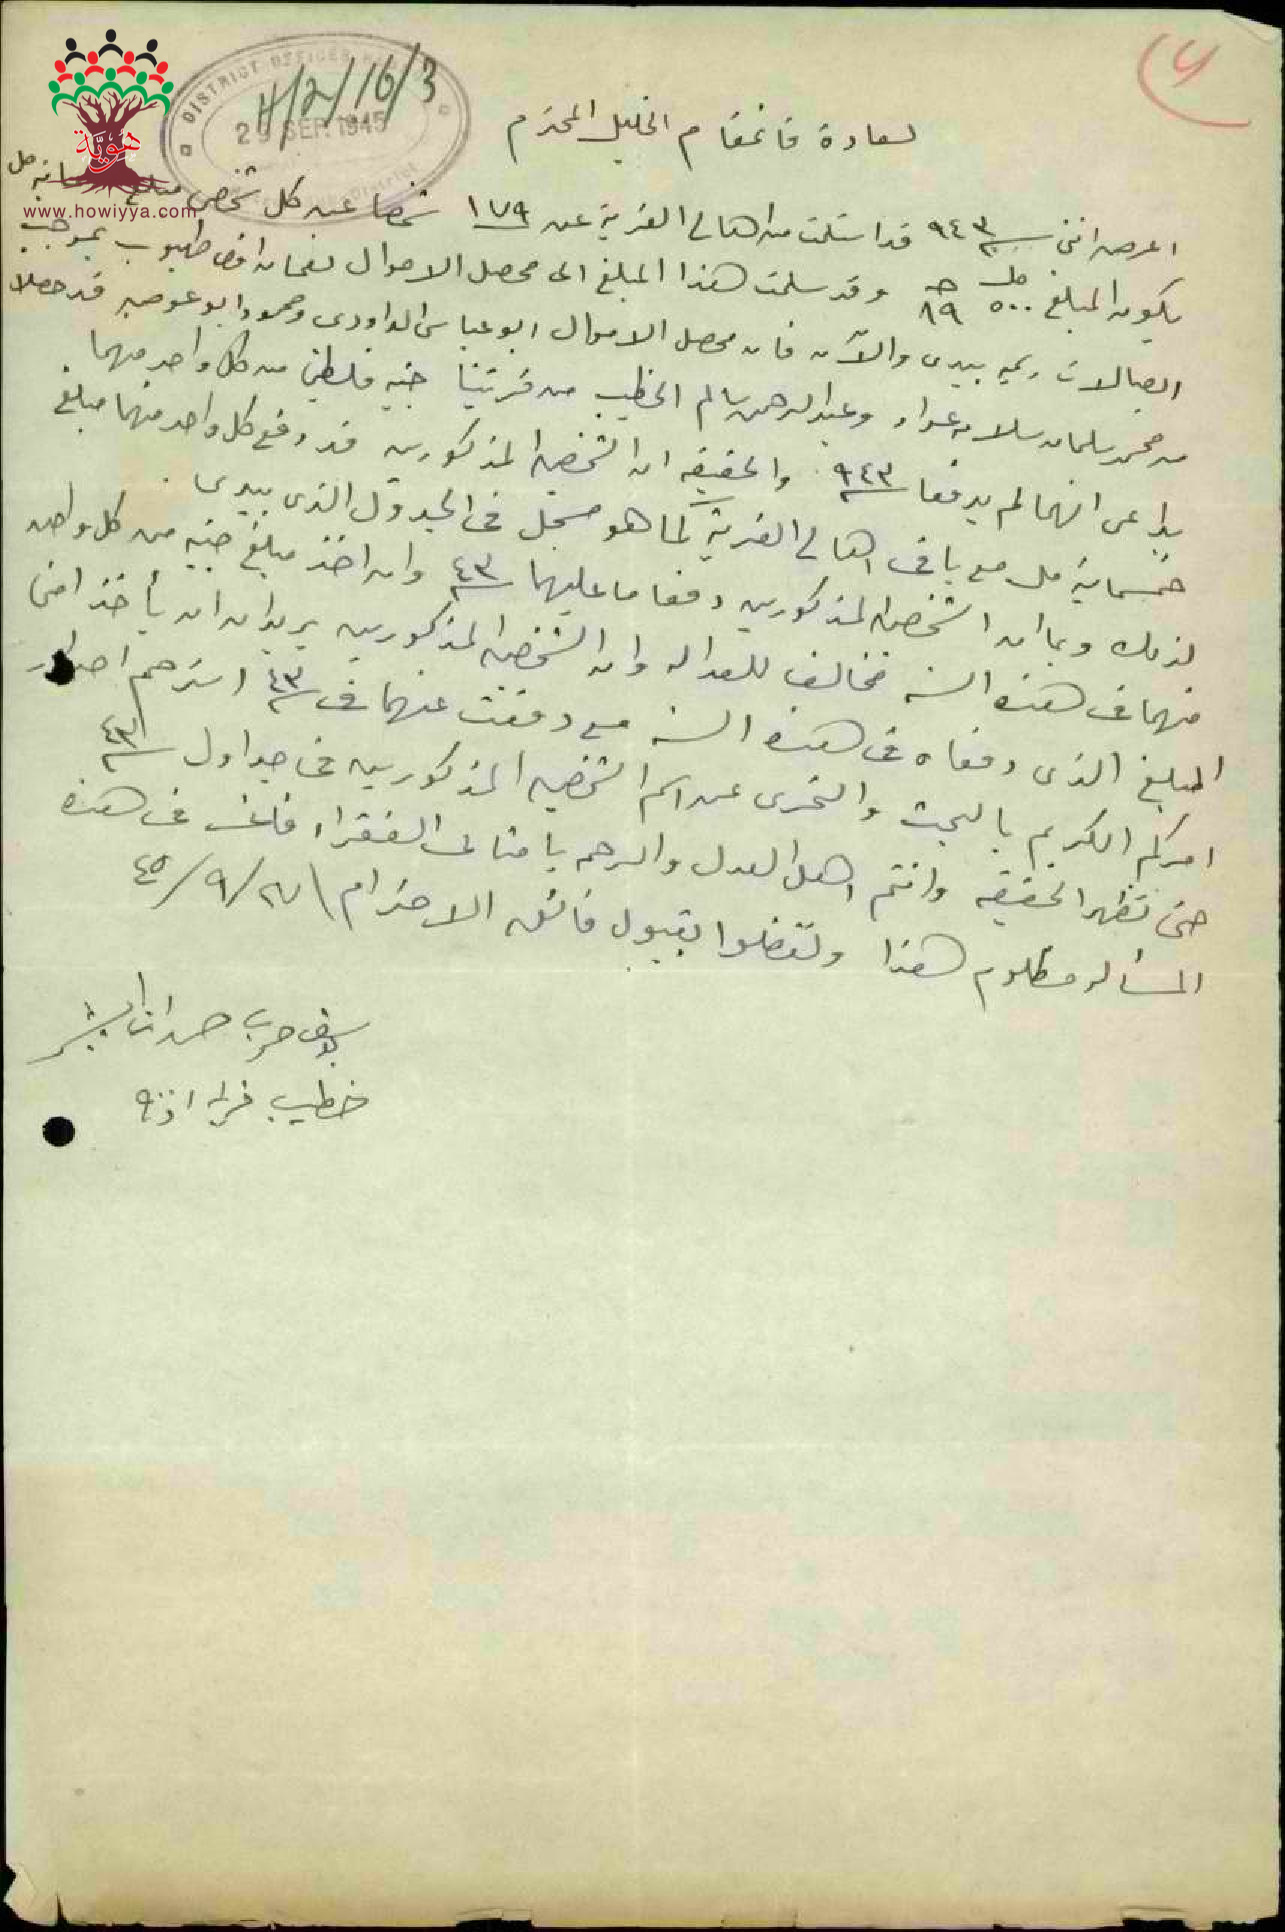 H/2/16/3
DISTRICT OFFICES
29 SEP. 1945
District
هوية
www.howiyya.com
لسعادة قائمقام الخليل المحترم
اعرض انني سنة ٩٤٣ قد استلمت من اهالي القرية عن ١٧٩ شخصا عن كل شخص مبلغ مل
يكون المبلغ ٥٠٠ مل ٨٩ جـ وقد سلمت هذا المبلغ الى محصل الاموال لقمان افندي بموجب
ايصالات رسميه بيدي والآن فان محصل الاموال ابو عباس الداودي ومحمود ابو عوض قد حصلا
من محمد سلمان سلامه عواد وعبد الرحمن سالم الخطيب من قريتنا جنيه فلسطيني من كل واحد منهما
بداعي انهما لم يدفعا سنة ٩٤٣ والحقيقه ان الشخصين المذكورين قد دفع كل واحد منهما مبلغ
خمسماية مل مع باقي اهالي القرية كما هو مسجل في الجدول الذي بيدي .
لذلك وبما ان الشخصين المذكورين دفعا ما عليهما سنة ٤٣ وان اخذ مبلغ جنيه من كل واحد
منهما في هذه السنه مخالف للعداله وان الشخصين المذكورين يريدان ان يأخذا مني
المبلغ الذي دفعاه في هذه السنه مع دفعت عنهما في سنة ٤٣ استرحم اصدار
امركم الكريم بالبحث والتحري عن اسم الشخصين المذكورين في جداول سنة ٤٣
حتى تظهر الحقيقه وانتم اهل العدل والرحمه بامثالي الفقراء فانني في هذه
المسأله مظلوم هذا وتفضلوا بقبول فائق الاحترام ٢٧/٩/٤٥
يوسف حرب
خطيب قرية اذنه